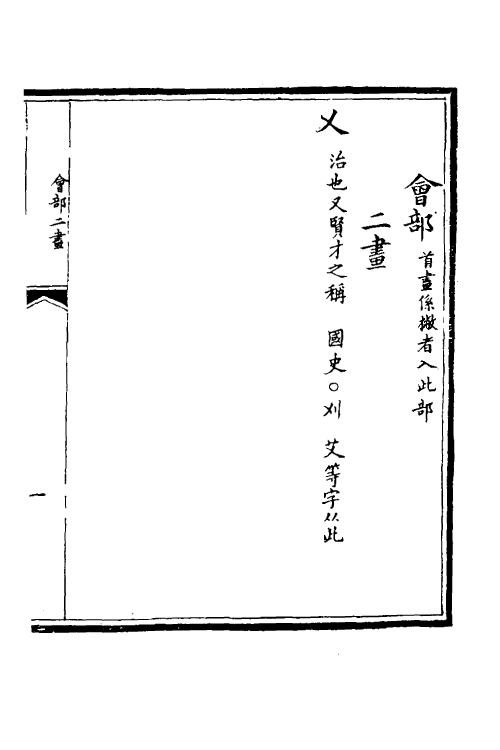 會部 首畫係撇者入此部
二畫
乂 治也又賢才之稱 國史○刈 艾等字从此
會部二畫
一